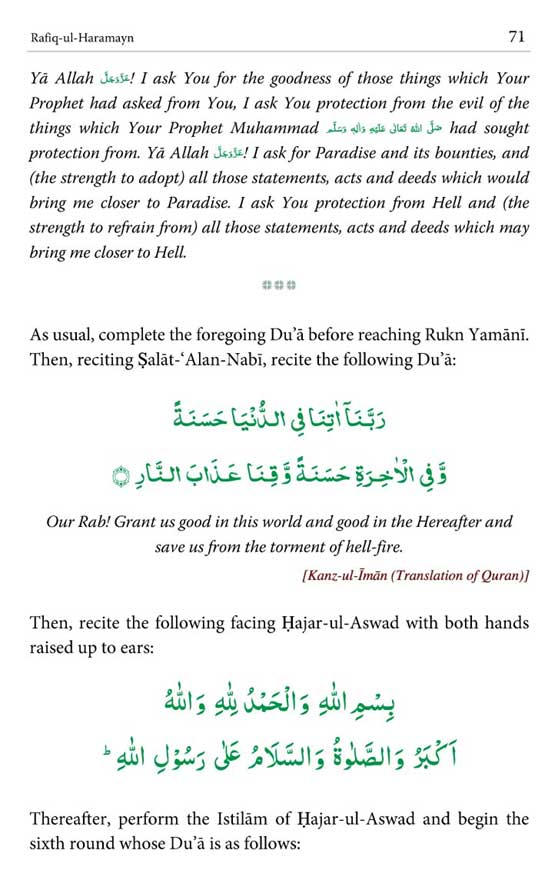 Rafiq-ul-Haramayn 71
Yā Allah عَزَّوَجَلَّ! I ask You for the goodness of those things which Your
Prophet had asked from You, I ask You protection from the evil of the
things which Your Prophet Muhammad صَلَّى اللهُ تَعَالٰى عَلَيْهِ وَاٰلِهٖ وَسَلَّم had sought
protection from. Yā Allah عَزَّوَجَلَّ! I ask for Paradise and its bounties, and
(the strength to adopt) all those statements, acts and deeds which would
bring me closer to Paradise. I ask You protection from Hell and (the
strength to refrain from) all those statements, acts and deeds which may
bring me closer to Hell.
As usual, complete the foregoing Du’ā before reaching Rukn Yamānī.
Then, reciting Ṣalāt-‘Alan-Nabī, recite the following Du’ā:
رَبَّنَاۤ اٰتِنَا فِی الدُّنْیَا حَسَنَةً
وَّ فِی الْاٰخِرَةِ حَسَنَةً وَّ قِنَا عَذَابَ النَّارِ
Our Rab! Grant us good in this world and good in the Hereafter and
save us from the torment of hell-fire.
[Kanz-ul-Īmān (Translation of Quran)]
Then, recite the following facing Ḥajar-ul-Aswad with both hands
raised up to ears:
بِسْمِ اللّٰهِ وَالْحَمْدُ لِلّٰهِ وَاللّٰهُ
اَكْبَرُ وَالصَّلٰوةُ وَالسَّلَامُ عَلٰى رَسُوْلِ اللّٰهِ ؕ
Thereafter, perform the Istilām of Ḥajar-ul-Aswad and begin the
sixth round whose Du’ā is as follows: